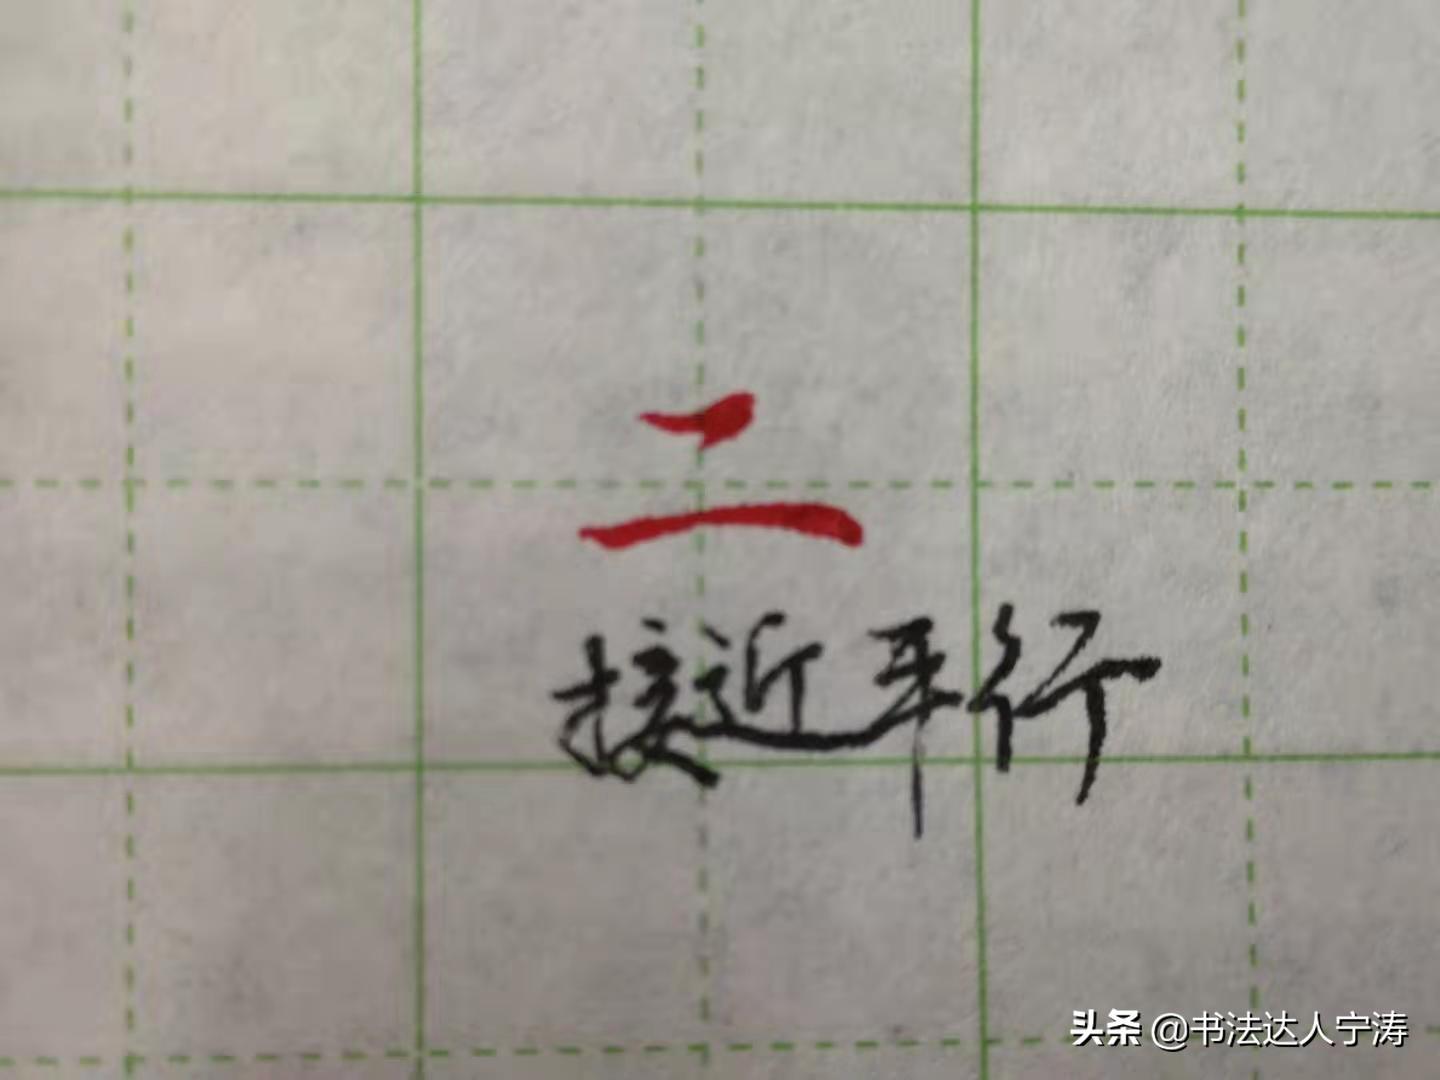 二
接近平行
头条 @书法达人宁涛